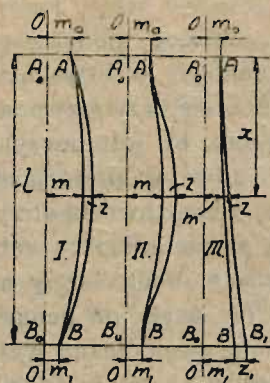 O m₀ O m₀ O m₀
A₀ A A₀ A A₀ A
x
l
m z m z m z
I. II. III.
B₀ B B₀ B B₀ B B₁
O m₁ O m₁ O m₁ z₁